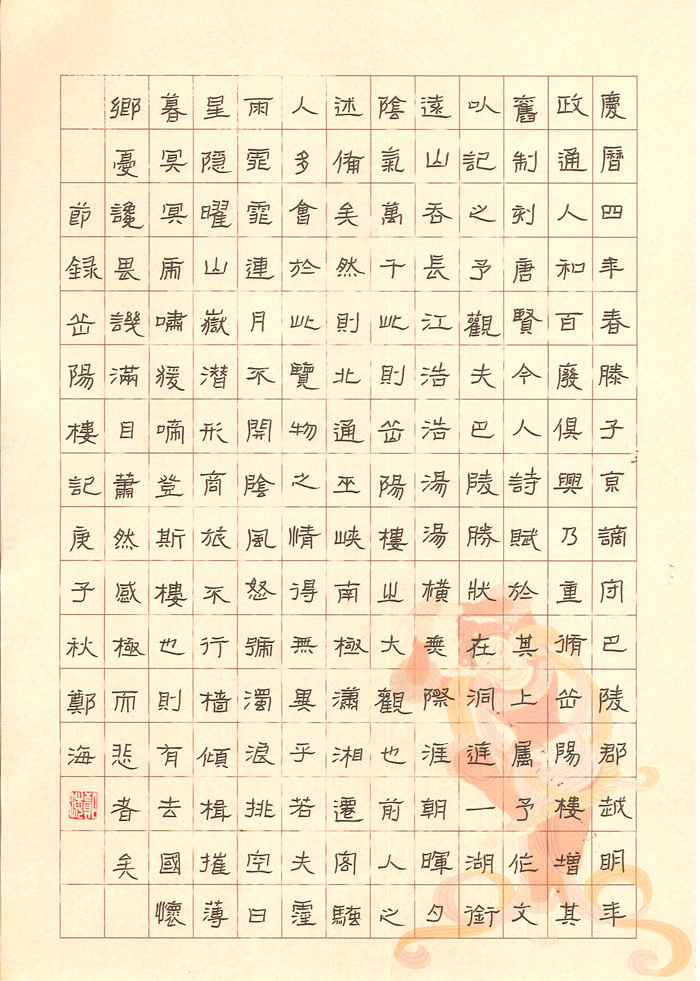 慶曆四年春滕子京謫守巴陵郡越明年
政通人和百廢俱興乃重脩岳陽樓增其
舊制刻唐賢今人詩賦於其上属予作文
以記之予觀夫巴陵勝狀在洞庭一湖銜
遠山吞長江浩浩湯湯橫無際涯朝暉夕
陰氣萬千此則岳陽樓之大觀也前人之
述備矣然則北通巫峽南極瀟湘遷客騷
人多會於此覽物之情得無異乎若夫霪
雨霏霏連月不開陰風怒號濁浪排空日
星隐曜山嶽潜形商旅不行檣傾楫摧薄
暮冥冥虎嘯猨啼登斯樓也則有去國懷
鄉憂讒畏譏滿目蕭然感極而悲者矣
節録岳陽樓記庚子秋鄭海